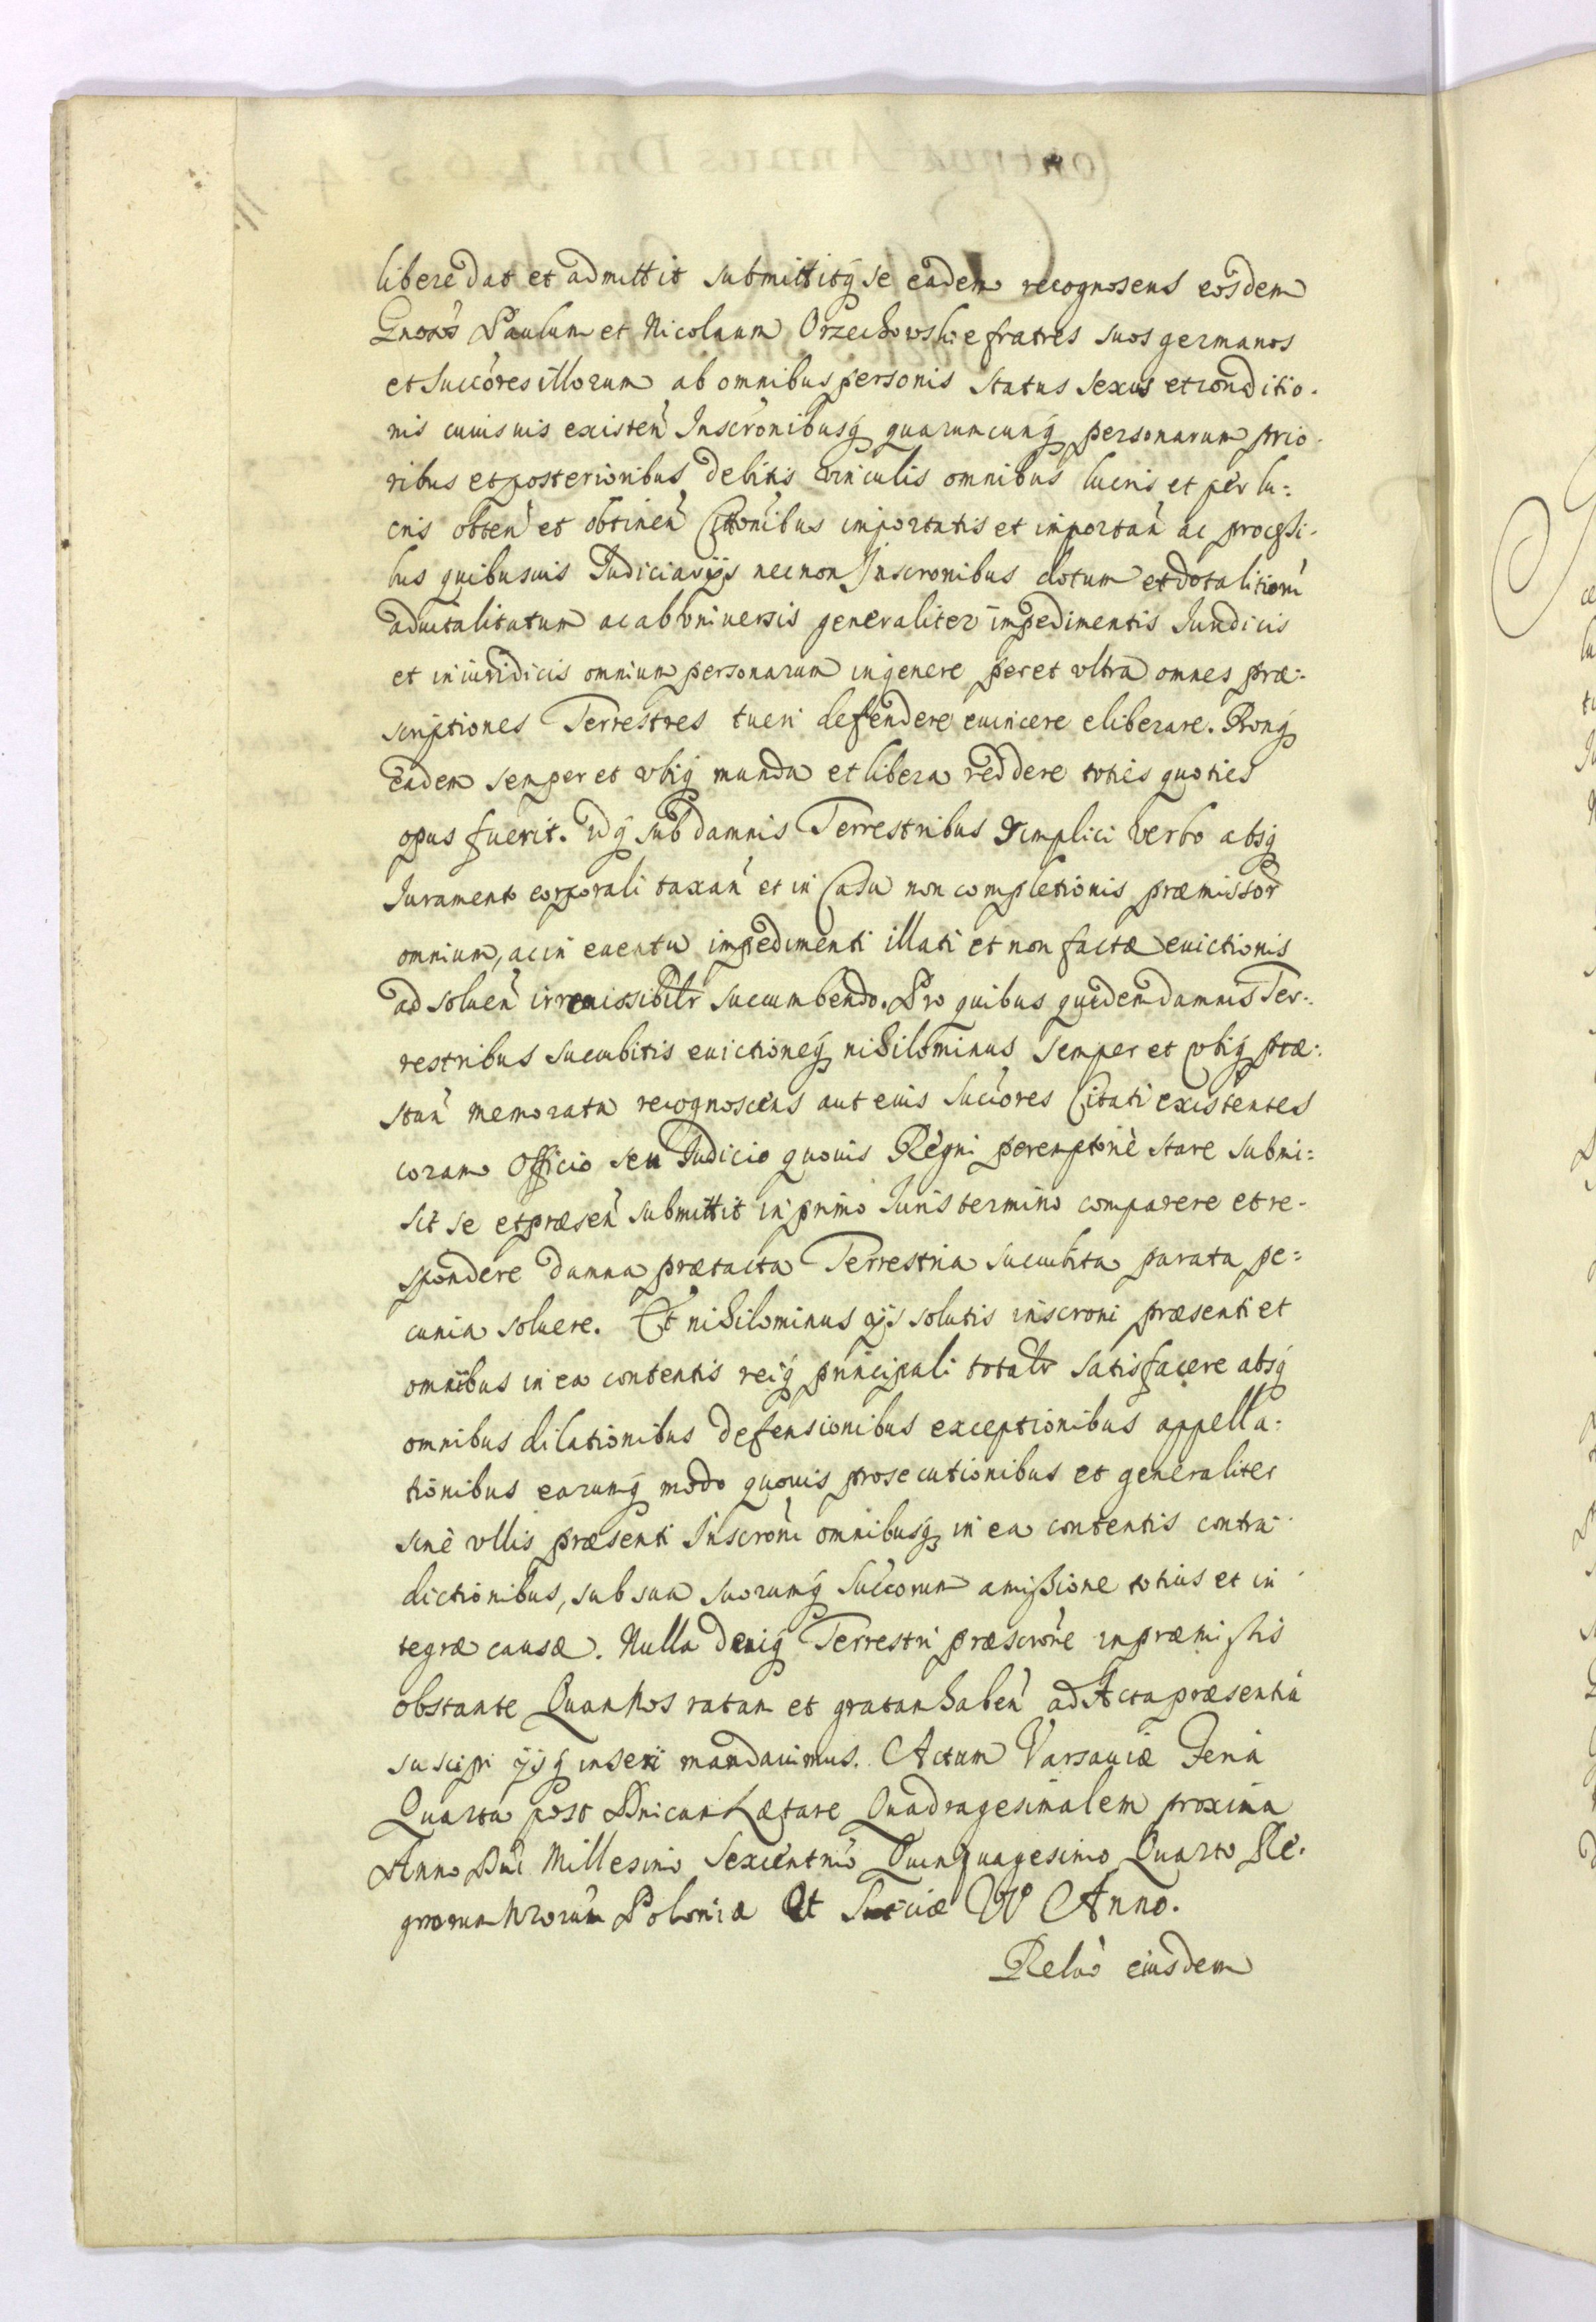 libere dat et admittit submittitq́ se eadem recognoscens eosdem
Gnosos Paulum et Nicolaum Orzechowskie fratres suos germanos
et Succores illorum ab omnibus personis status sexus et conditio-
nis cuiusuis existen̄ Inscronibusq́ quarumcunq́ personarum prio-
ribus et posterioribus debitis vinculis omnibus lucris et per lu:
cris obten̄ et obtinen̄ Cittonibus importatis et importan̄ ac processi-
bus quibusuis Iudiciarijs necnon Inscronibus dotum et dotalitiorū
aduitalitatum ac ab vniuersis generaliter impedimentis Iuridicis
et iniuridicis omnium personarum in genere per et vltra omnes præ:
scriptiones Terrestres tueri defendere euincere eliberare. Bonq́
eadem semper et vbiq́ munda et libera reddere toties quoties
opus fuerit. Idq́ sub damnis Terrestribus simplici verbo absq́
Iuramento corporali taxan̄ et in Casu non completionis præmissor
omnium, ac in euentu impedimenti illati et non factæ euictionis
ad soluen̄ irremissibilr succumbendo. Pro quibus quidem damnis Ter:
restribus succubitis euictioneq́ nihilominus semper et vbiq́ præ:
stan̄ memorata recognoscens aut eius Succores Citati existentes
coram Officio seu Iudicio quouis Regni peremptorie stare submi:
sit se et præsen̄ submittit in primo Iuris termino comparere et re-
spondere damna prætacta Terrestria succubita parata pe:
cunia soluere. Et nihilominus ijs solutis inscroni præsenti et
omnibus in ea contentis reiq́ principali totalr satisfacere absq́
omnibus dilationibus defensionibus exceptionibus appella:
tionibus earumq́ modo quouis prosecutionibus et generaliter
sine vllis præsenti Inscroni omnibusq́ in ea contentis contra-
dictionibus, sub sua suorumq́ Succorum amissione totius et in
tegræ causæ. Nulla deniq́ Terrestri præscrone in præmissis
obstante Quam Nos ratam et gratam haben̄ ad Acta præsentia
suscipi ijsq́ inseri mandauimus. Actum Varsauiæ Feria
Quarta post Dnicam Lætare Quadragesimalem proxima
Anno Dni Millesimo Sexcentmo Quinquagesimo Quarto Re-
gnorum Nrorum Poloniæ Et Sueciæ VI Anno.
Relao eiusdem